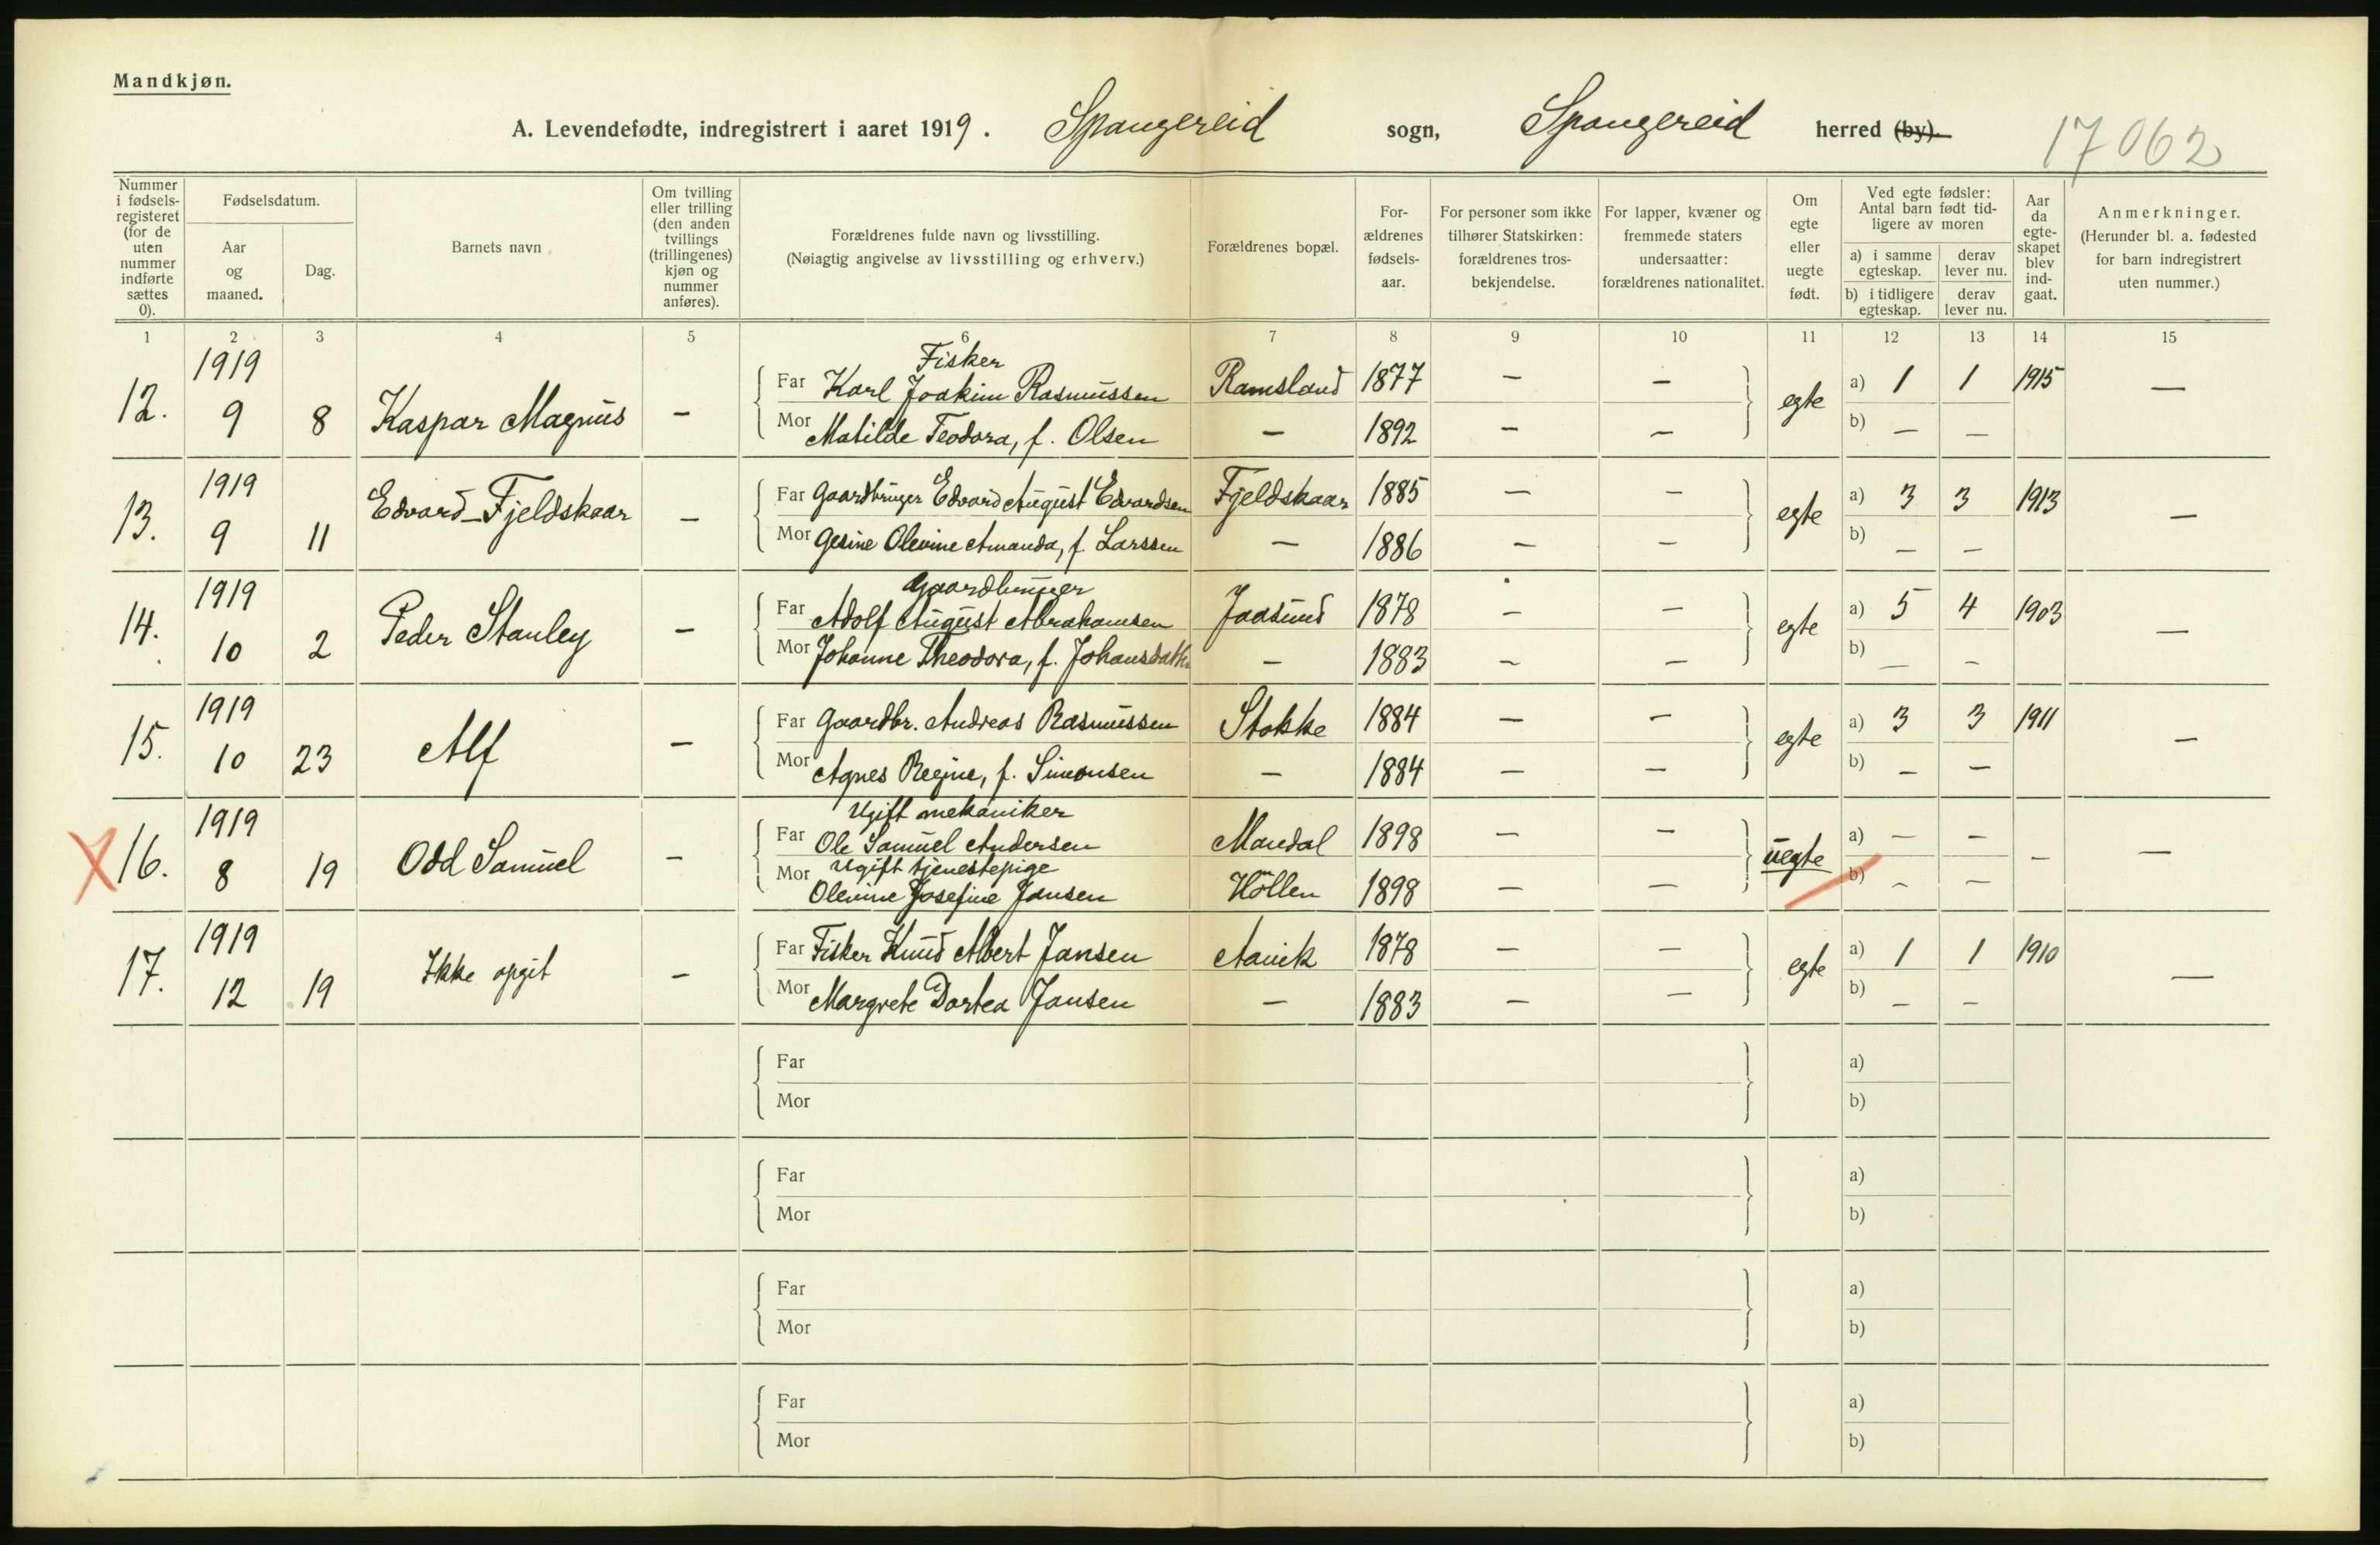 Mandkjøn.
A. Levendefødte, indregistrert i aaret 1919. Spangereid sogn, Spangereid herred (by).
17062
Nummer i fødselsregisteret (for de uten nummer indførte sættes 0).
Fødselsdatum.
Aar og maaned.
Dag.
Barnets navn.
Om tvilling eller trilling (den anden tvillings (trillingenes) kjøn og nummer anføres).
Forældrenes fulde navn og livsstilling.
(Nøiagtig angivelse av livsstilling og erhverv.)
Forældrenes bopæl.
Forældrenes fødselsaar.
For personer som ikke tilhører Statskirken: forældrenes trosbekjendelse.
For lapper, kvæner og fremmede staters undersaatter: forældrenes nationalitet.
Om egte eller uegte født.
Ved egte fødsler: Antal barn født tidligere av moren
a) i samme egteskap.
derav lever nu.
b) i tidligere egteskap.
derav lever nu.
Aar da egteskapet blev indgaat.
Anmerkninger.
(Herunder bl. a. fødested for barn indregistrert uten nummer.)
1 2 3 4 5 6 7 8 9 10 11 12 13 14 15
1919 Fisker
12. 9 8 Kaspar Magnus - Far Karl Joakim Rasmussen Ramsland 1877 - - egte a) 1 1 1915 -
Mor Matilde Teodora, f. Olsen - 1892 - - b) - -
1919
13. 9 11 Edvard Fjeldskaar - Far Gaardbruger Edvard August Edvardsen Fjeldskaar 1885 - - egte a) 3 3 1913 -
Mor Gesine Olevine Amanda, f. Larssen - 1886 - - b) - -
1919 Gaardbruger
14. 10 2 Peder Stanley - Far Adolf August Abrahamsen Jaasund 1878 - - egte a) 5 4 1903 -
Mor Johanne Theodora, f. Johansdatter - 1883 - - b) - -
1919
15. 10 23 Alf - Far Gaardbr. Andreas Rasmussen Stokke 1884 - - egte a) 3 3 1911 -
Mor Agnes Regine, f. Simonsen - 1884 - - b) - -
1919 Ugift mekaniker
X 16. 8 19 Odd Samuel - Far Ole Samuel Andersen Mandal 1898 - - uegte a) - - - -
Mor Ugift tjenestepige
Olevine Josefine Jansen Höllen 1898 - - b) - -
1919
17. 12 19 Ikke opgit - Far Fisker Knud Albert Jansen Aavik 1878 - - egte a) 1 1 1910 -
Mor Margrete Dortea Jansen - 1883 - - b) - -
Far a)
Mor b)
Far a)
Mor b)
Far a)
Mor b)
Far a)
Mor b)